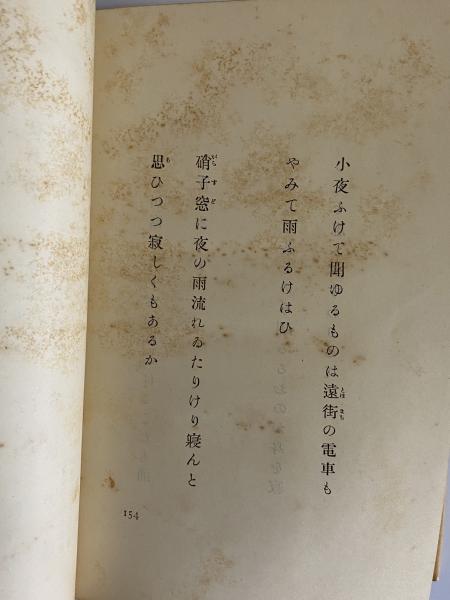 小夜ふけて聞ゆるものは遠街の電車も
やみて雨ふるけはひ
硝子窓に夜の雨流れゐたりけり寝んと
思ひつつ寂しくもあるか
154